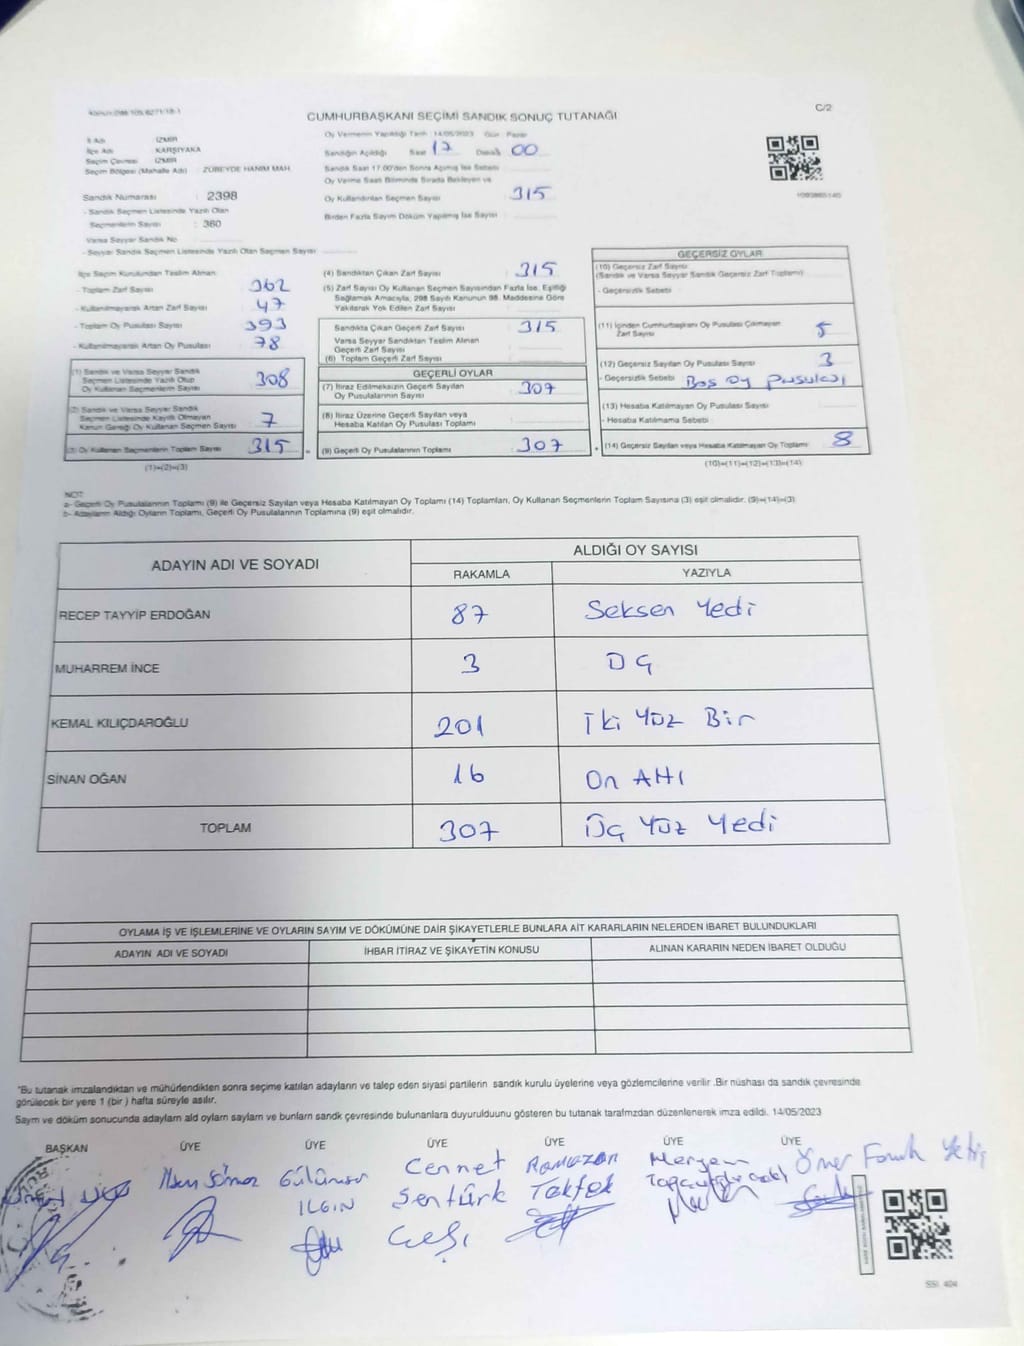 C/2
CUMHURBAŞKANI SEÇİMİ SANDIK SONUÇ TUTANAĞI
İl Adı İZMİR
İlçe Adı KARŞIYAKA
Seçim Çevresi İZMİR
Seçim Bölgesi (Mahalle Adı) : ZÜBEYDE HANIM MAH.
Sandık Numarası : 2398
- Sandık Seçmen Listesinde Yazılı Olan
Seçmenlerin Sayısı : 360
Varsa Seyyar Sandık No
- Seyyar Sandık Seçmen Listesinde Yazılı Olan Seçmen Sayısı
Oy Vermenin Yapıldığı Tarih : 14/05/2023 Gün : Pazar
Sandığın Açıldığı Saat 17 Dakika 00
Sandık Saat 17.00'den Sonra Açılmış İse Sebebi
Oy Verme Saati Bitiminde Sırada Bekleyen ve
Oy Kullandırılan Seçmen Sayısı 315
Birden Fazla Sayım Döküm Yapılmış İse Sayısı
İlçe Seçim Kurulundan Teslim Alınan
- Toplam Zarf Sayısı 362
- Kullanılmayarak Artan Zarf Sayısı 47
- Toplam Oy Pusulası Sayısı 393
- Kullanılmayarak Artan Oy Pusulası 78
(1) Sandık ve Varsa Seyyar Sandık
Seçmen Listesinde Yazılı Olup
Oy Kullanan Seçmenlerin Sayısı 308
(2) Sandık ve Varsa Seyyar Sandık
Seçmen Listesinde Kayıtlı Olmayan
Kanun Gereği Oy Kullanan Seçmen Sayısı 7
(3) Oy Kullanan Seçmenlerin Toplam Sayısı 315
(1)+(2)=(3)
(4) Sandıktan Çıkan Zarf Sayısı 315
(5) Zarf Sayısı Oy Kullanan Seçmen Sayısından Fazla İse, Eşitliği
Sağlamak Amacıyla, 298 Sayılı Kanunun 98. Maddesine Göre
Yakılarak Yok Edilen Zarf Sayısı
Sandıkta Çıkan Geçerli Zarf Sayısı 315
Varsa Seyyar Sandıktan Teslim Alınan
Geçerli Zarf Sayısı
(6) Toplam Geçerli Zarf Sayısı
GEÇERLİ OYLAR
(7) İtiraz Edilmeksizin Geçerli Sayılan
Oy Pusulalarının Sayısı 307
(8) İtiraz Üzerine Geçerli Sayılan veya
Hesaba Katılan Oy Pusulası Toplamı
(9) Geçerli Oy Pusulalarının Toplamı 307
GEÇERSİZ OYLAR
(10) Geçersiz Zarf Sayısı
(Sandık ve Varsa Seyyar Sandık Geçersiz Zarf Toplamı)
- Geçersizlik Sebebi
(11) İçinden Cumhurbaşkanı Oy Pusulası Çıkmayan
Zarf Sayısı 5
(12) Geçersiz Sayılan Oy Pusulası Sayısı 3
- Geçersizlik Sebebi Boş Oy pusulası
(13) Hesaba Katılmayan Oy Pusulası Sayısı
- Hesaba Katılmama Sebebi
(14) Geçersiz Sayılan veya Hesaba Katılmayan Oy Toplamı 8
(10)+(11)+(12)+(13)=(14)
NOT:
a- Geçerli Oy Pusulalarının Toplamı (9) ile Geçersiz Sayılan veya Hesaba Katılmayan Oy Toplamı (14) Toplamları, Oy Kullanan Seçmenlerin Toplam Sayısına (3) eşit olmalıdır. (9)+(14)=(3)
b- Adayların Aldığı Oyların Toplamı, Geçerli Oy Pusulalarının Toplamına (9) eşit olmalıdır.
ADAYIN ADI VE SOYADI ALDIĞI OY SAYISI
RAKAMLA YAZIYLA
RECEP TAYYİP ERDOĞAN 87 Seksen Yedi
MUHARREM İNCE 3 ÜÇ
KEMAL KILIÇDAROĞLU 201 İki Yüz Bir
SİNAN OĞAN 16 On Altı
TOPLAM 307 Üç Yüz Yedi
OYLAMA İŞ VE İŞLEMLERİNE VE OYLARIN SAYIM VE DÖKÜMÜNE DAİR ŞİKAYETLERLE BUNLARA AİT KARARLARIN NELERDEN İBARET BULUNDUKLARI
ADAYIN ADI VE SOYADI İHBAR İTİRAZ VE ŞİKAYETİN KONUSU ALINAN KARARIN NEDEN İBARET OLDUĞU
"Bu tutanak imzalandıktan ve mühürlendikten sonra seçime katılan adayların ve talep eden siyasi partilerin sandık kurulu üyelerine veya gözlemcilerine verilir .Bir nüshası da sandık çevresinde
görülecek bir yere 1 (bir ) hafta süreyle asılır.
Sayım ve döküm sonucunda adayların ald oyların saylarn ve bunların sandk çevresinde bulunanlara duyurulduunu gösteren bu tutanak tarafmzdan düzenlenerek imza edildi. 14/05/2023
BAŞKAN ÜYE ÜYE ÜYE ÜYE ÜYE ÜYE
Cennet Ramazan Meryem Ömer Faruk Yetiş
ILGIN Şentürk Tektek
SSİ. 404